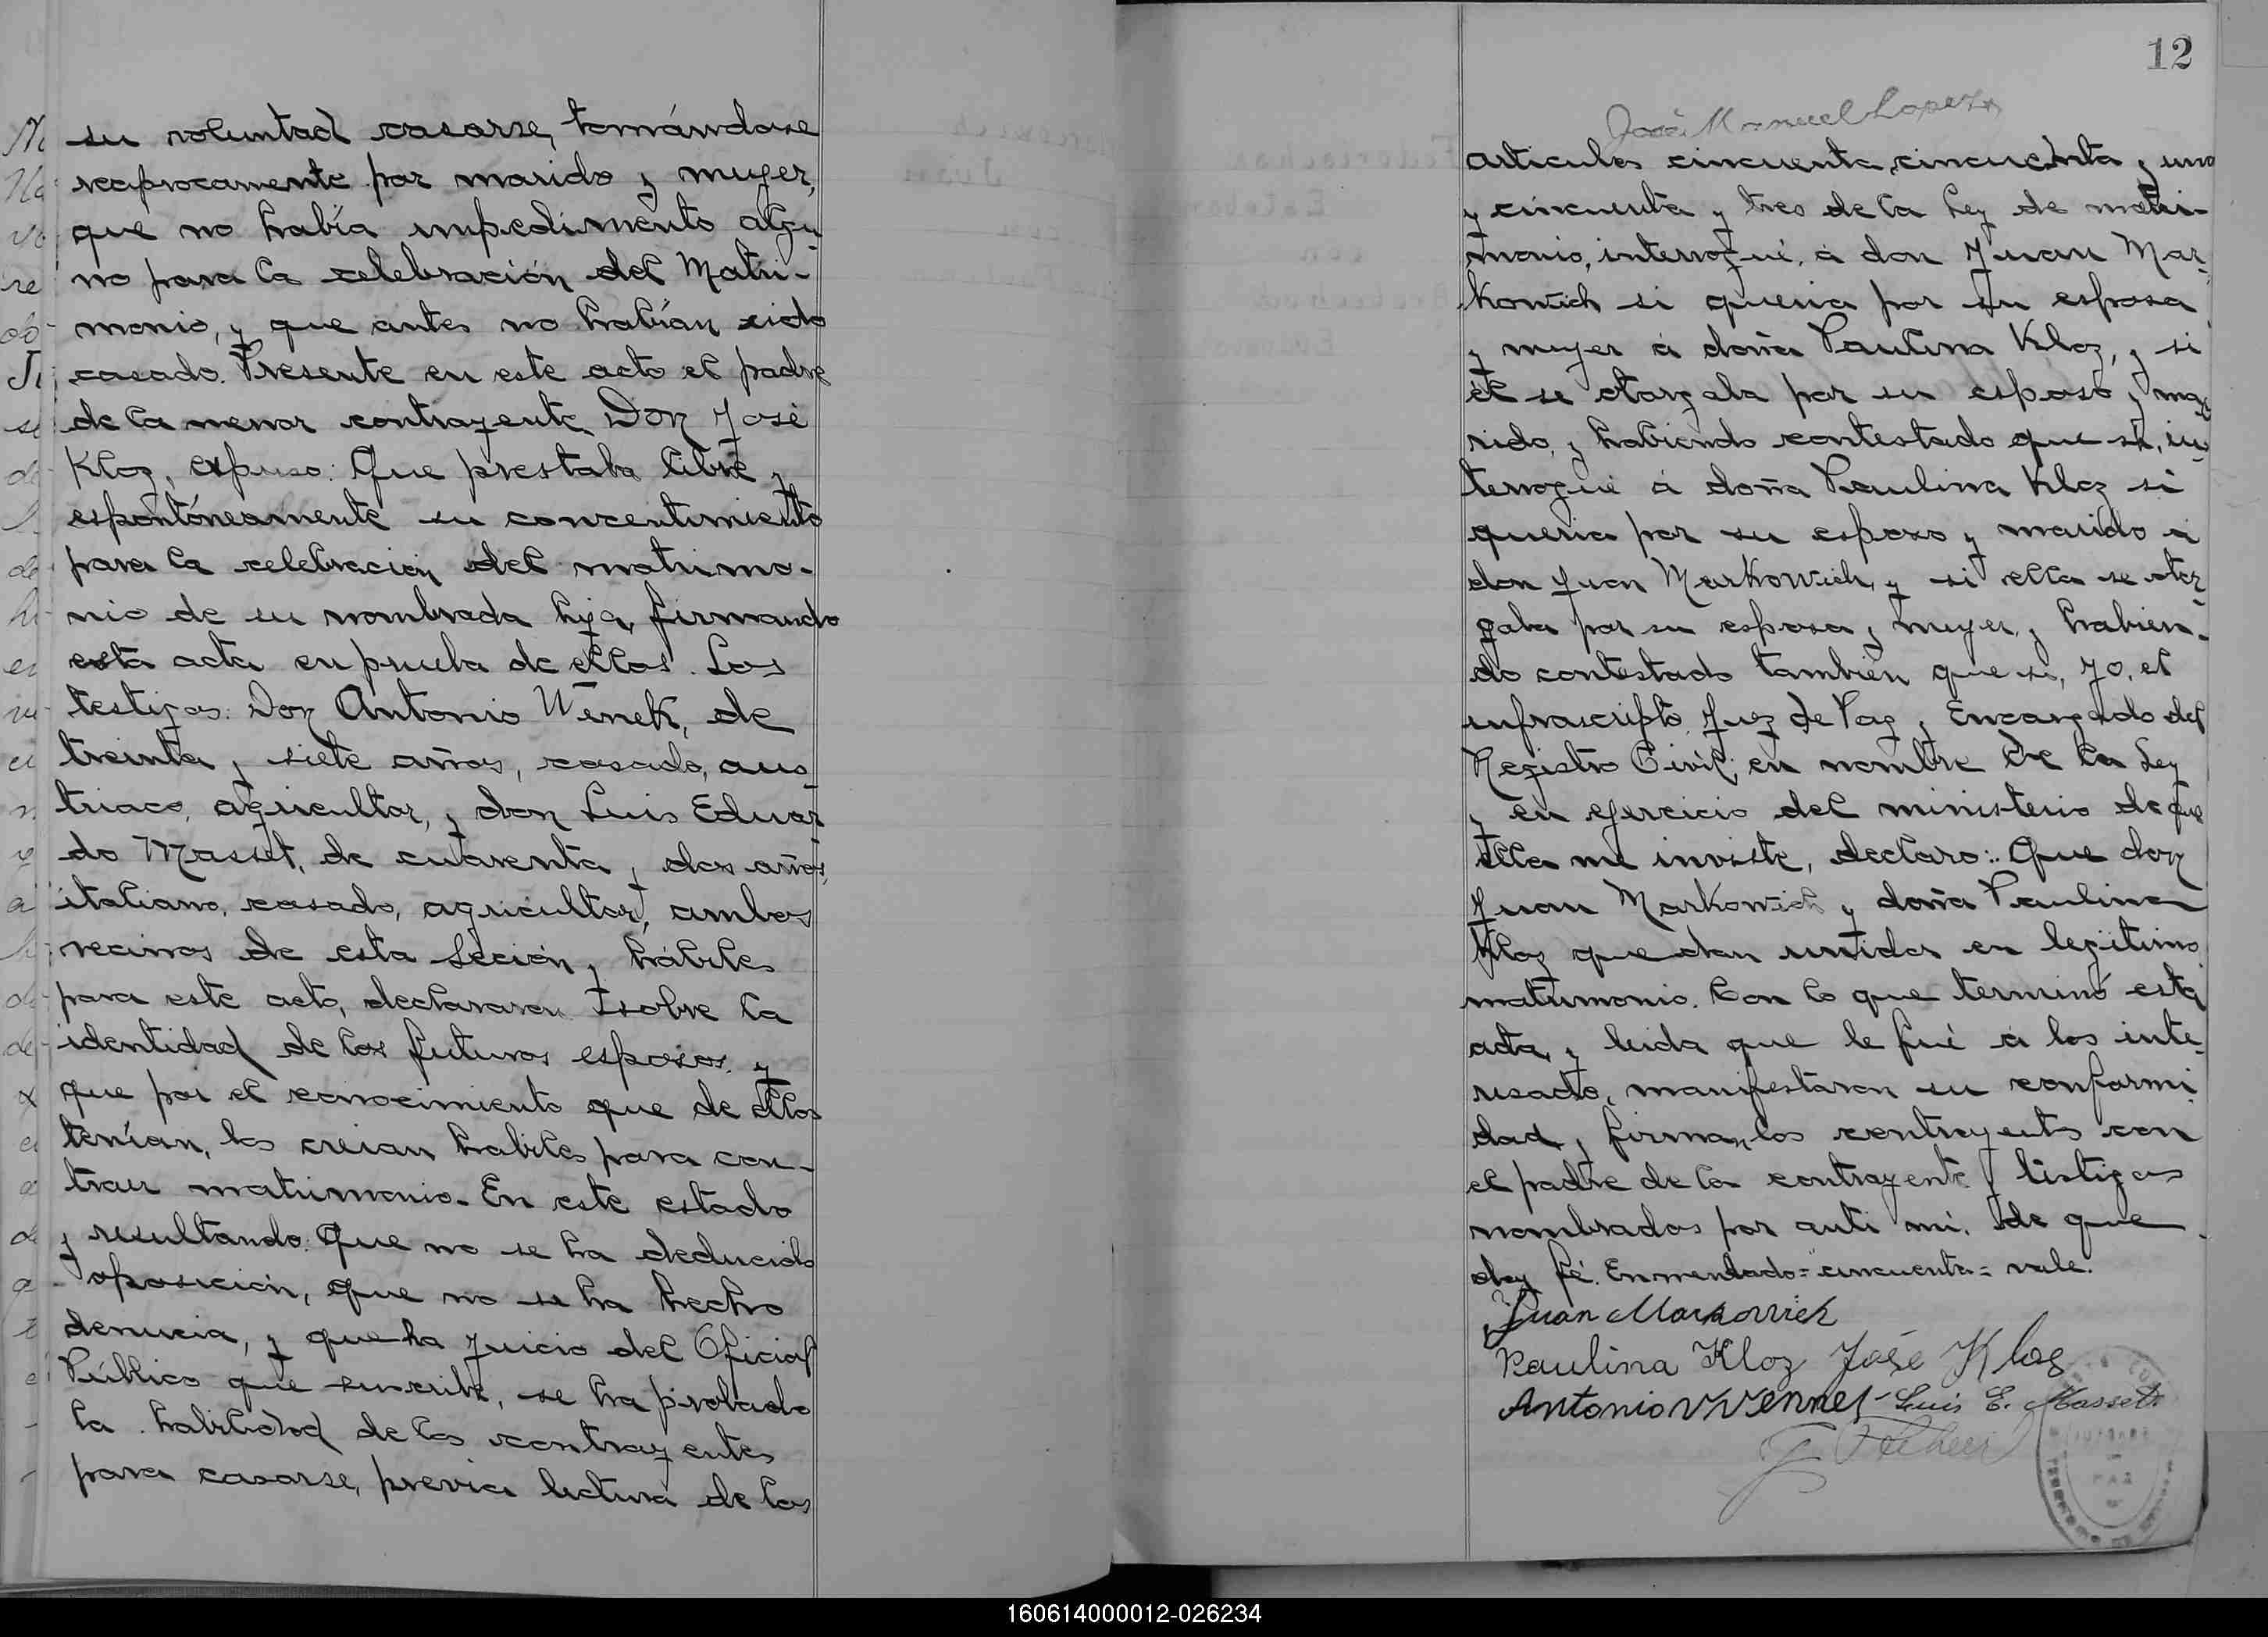 su voluntad casarse, tomándose
reciprocamente por marido y mujer,
que no había impedimento algu-
no para la celebración del Matri-
monio, y que antes no habían sido
casado. Presente en este acto el padre
de la menor contrayente Don José
Kloz, expuso: Que prestaba libre y
espontóneamente su concentimiento
para la celebracion del matrimo-
nio de su nombrada hija, firmando
esta acta en prueba de ellos. Los
testigos: Don Antonio Wenek, de
treinta y siete años, casado, aus
triaco, agricultor, y don Luis Eduar
do Masset, de cuarenta y dos años,
italiano, casado, agricultor, ambos
vecinos de esta Seción, y hábiles
para este acto, declararon sobre la
identidad de los futuros esposos, y
que por el conocimiento que de ellos
tenían, los creian habiles para con-
traer matrimonio. En este estado
y resultando: Que no se ha deducido
oposición, que no se ha hecho
denucia, y que ha juicio del Oficial
Público que suscribe, se ha probado
la habilidad de los contrayentes
para casarse, previa lectura de los
12
José Manuel Lopez
articulos cincuenta, cincuenta y uno
y cincuenta y tres de la Ley de matri-
monio, interrogué, á don Juan Mar-
kowich si queria por su esposa
y mujer á doña Paulina Kloz, y si
él se otorgaba por su esposo y ma-
rido, y habiendo contestado que si, in-
terrogué á doña Paulina Kloz si
queria por su esposo y marido á
don Juan Markowich, y si ella se otor-
gaba por su esposa y mujer, y habien-
do contestado también que si, yo, el
infrascripto Juez de Paz y Encargado del
Registro Civil, en nombre de la Ley
y en ejercicio del ministerio de que
ella me inviste, declaro: Que don
Juan Markowich y doña Paulina
Kloz quedan unidos en legitimo
matrimonio. Con lo que terminó esta
acta, y leida que le fué á los inte-
resado, manifestaron su conformi
dad y firman los contrayents con
el padre de la contrayente y listigos
nombrados por anti mi, de que
doy fé. Enmendado = cincuenta = vale.
Juan Markovvich
Paulina Kloz José Kloz
Antonio VVennek Luis E. Masset
160614000012-026234